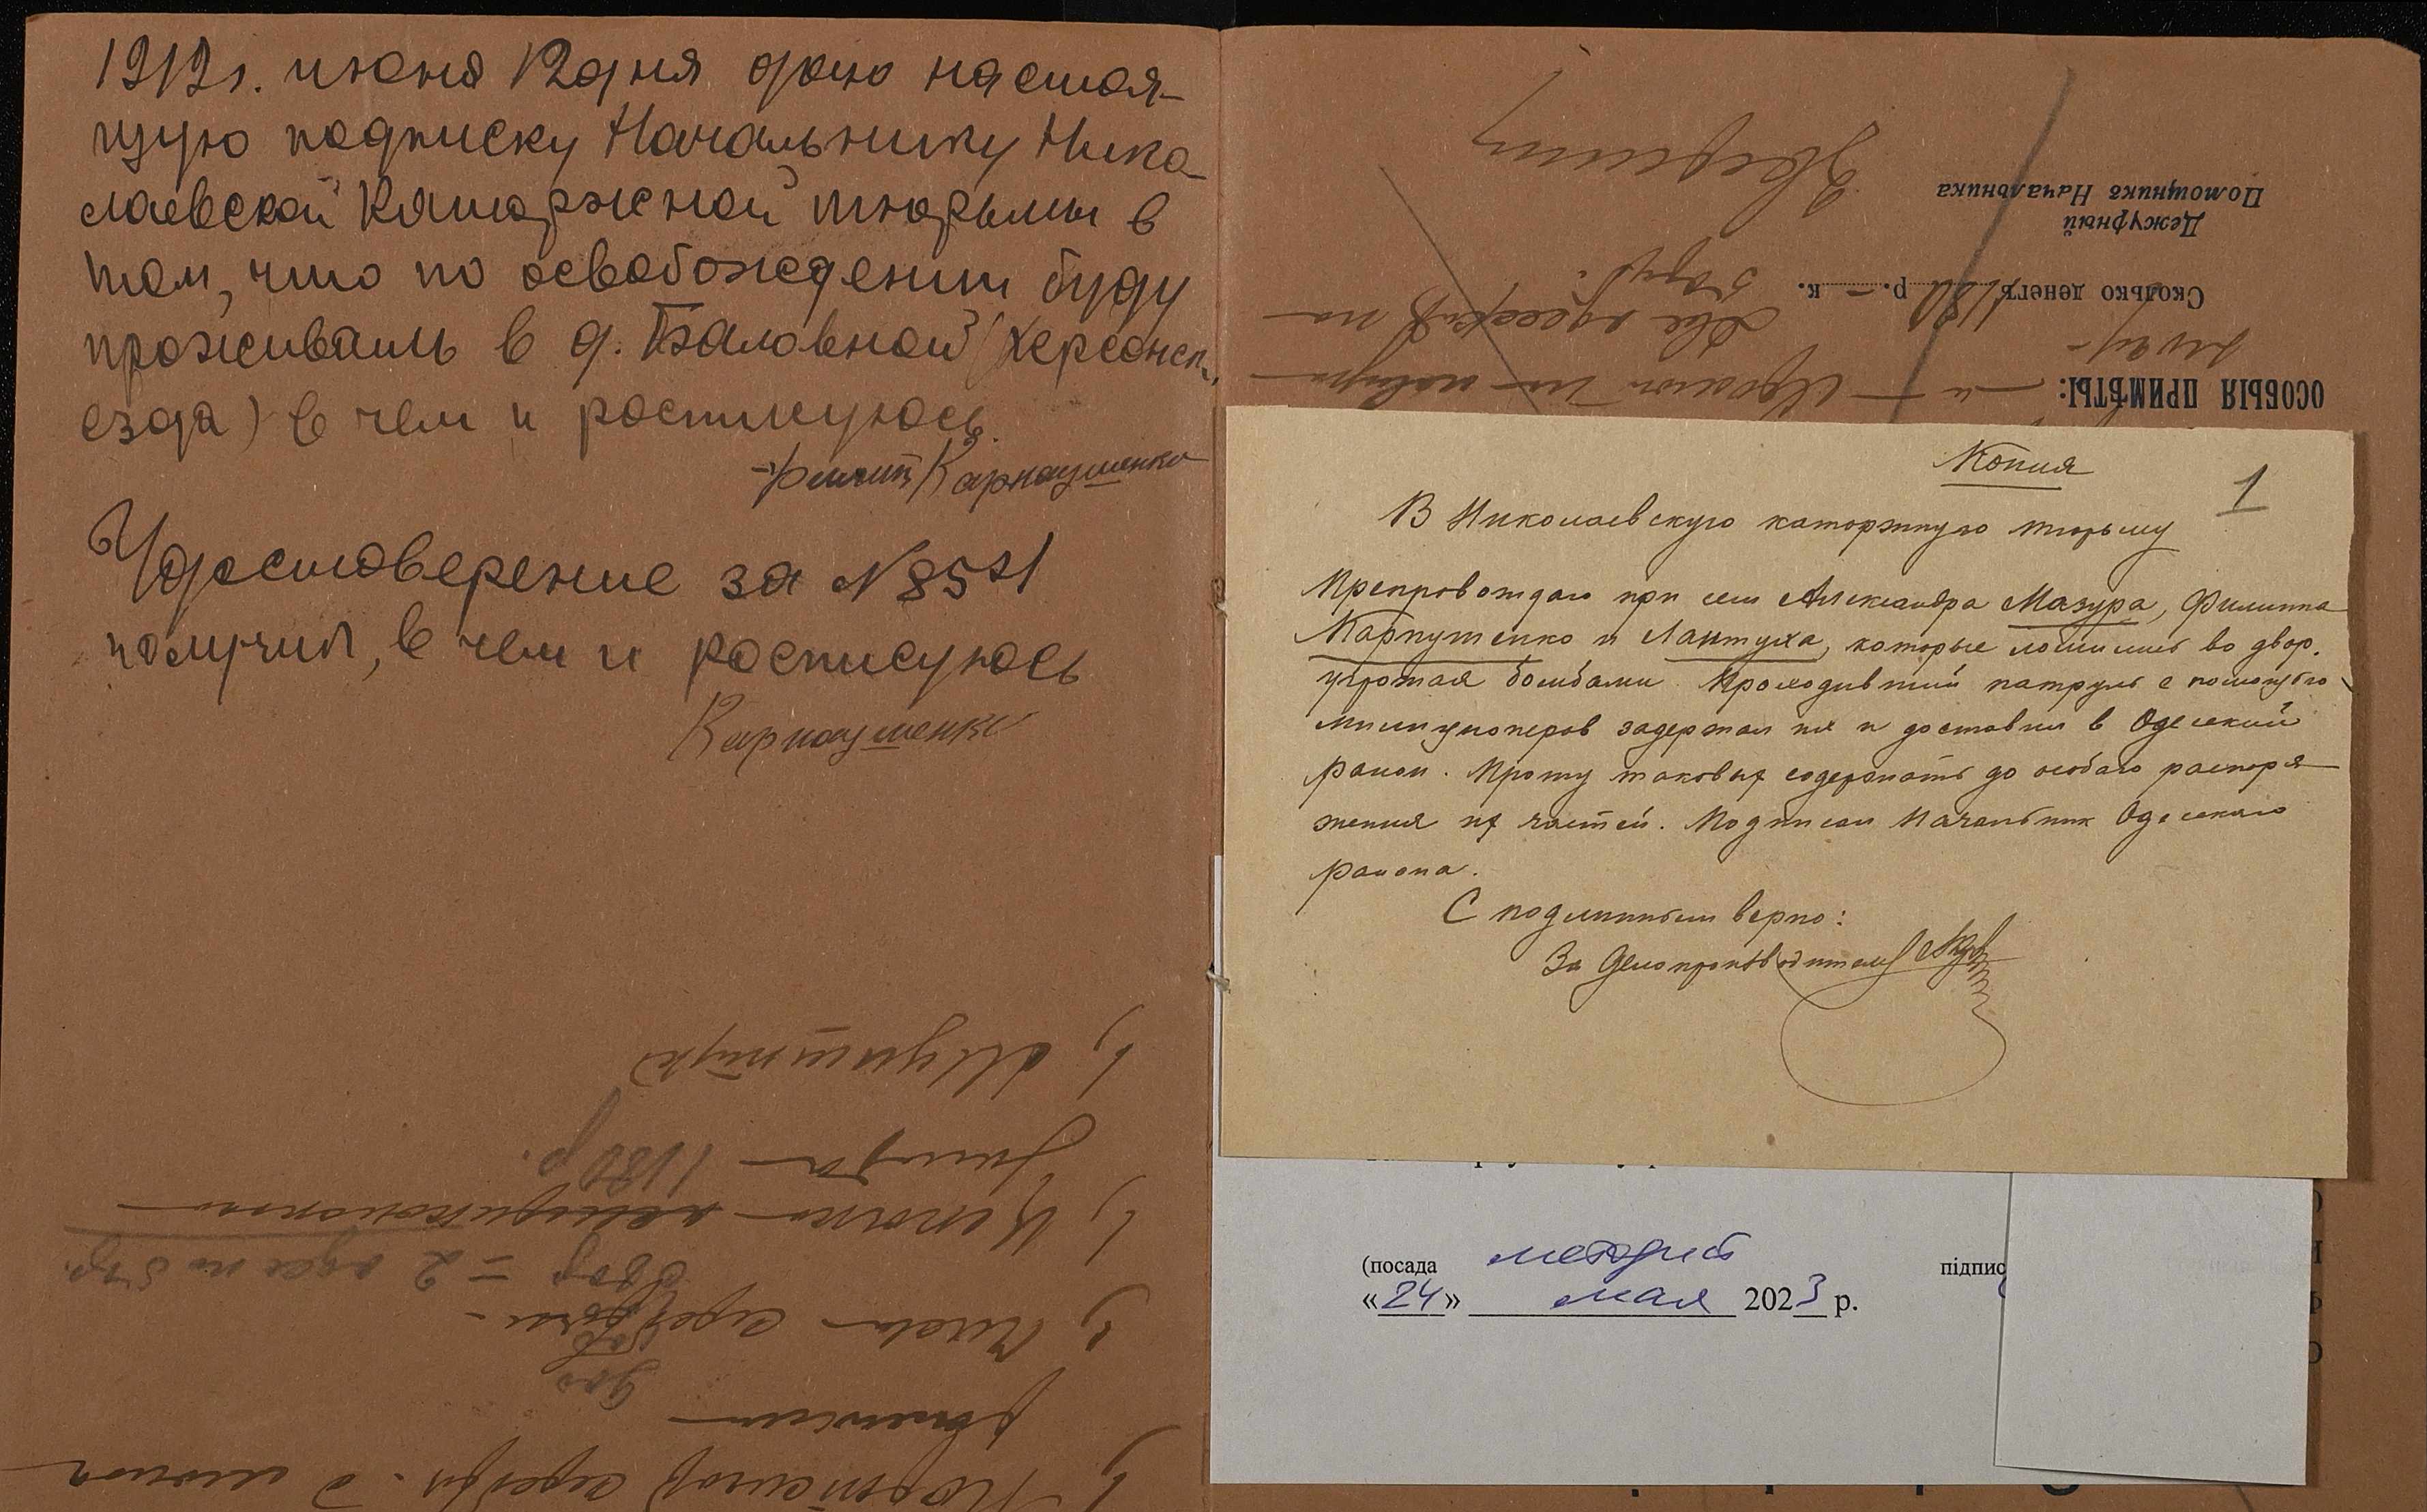 1919г. июня 12 дня даю настоя-
щую подписку Начальнику Нико-
лаевской Каторжной тюрьмы в
том, что по освобождении буду
проживать в д. Баловной (Херсонск.
езда) в чем и роспишуюсь.
Филип Карнаушенко
Удостоверение за №8541
получил, в чем и росписуюсь
Карнаушенко
1) Мунштук
1) Цепочка
1180 р.
= 2 одес по 5 р.
1) Часы серебрян
Дежурный
Помощникъ Начальника
Сколько денегъ 1180 р. — к.
Две одесских по
5 руб.
ОСОБЫЯ ПРИМѢТЫ:
Копия
1
В Николаевскую каторжную тюрьму
Препровождаю при сем Александра Мазура, Филиппа
Карнушенко и Лантуха, которые ломились во двор,
угрожая бомбами. Проходивший патруль с помощью
милиционеров задержал их и доставил в Одесский
район. Прошу таковых содержать до особаго распоря-
жения их частей. Подписал Начальник Одесскаго
района.
С подлинным верно:
За Делопроизводителя
(посада методист підпис
«24» мая 2023 р.